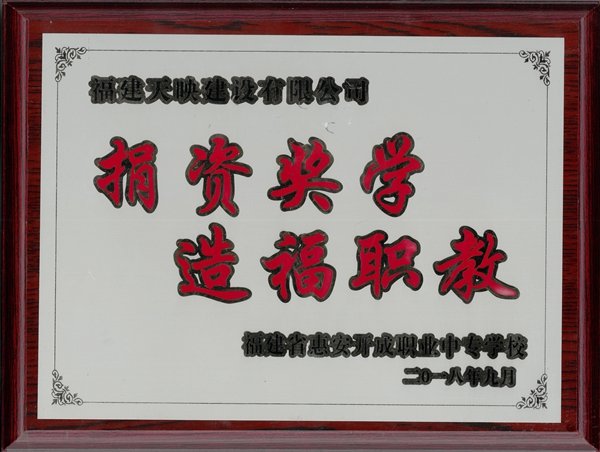 福建天映建设有限公司
捐资奖学
造福职教
福建省惠安开成职业中专学校
二〇一八年九月